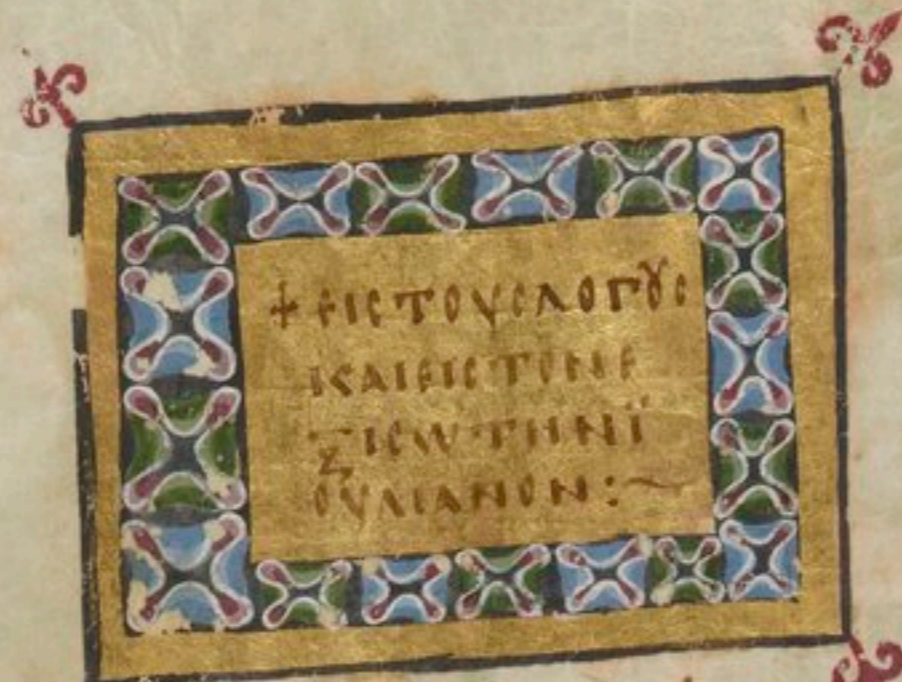 + ΕΙΣ ΤΟΥΣ ΛΟΓȢΣ
ΚΑΙ ΕΙΣ ΤΟΝ Ε
ΞΙΣΩΤΗΝ Ϊ
ΟΥΛΙΑΝΟΝ :~